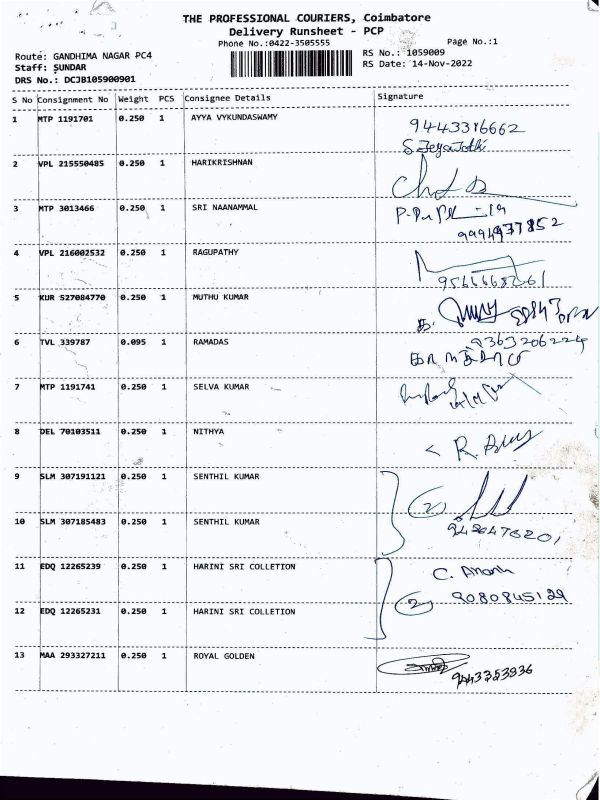 THE PROFESSIONAL COURIERS, Coimbatore
Delivery Runsheet - PCP
Phone No.:0422-3505555 Page No.:1
Route: GANDHIMA NAGAR PC4 RS No.: 1059009
Staff: SUNDAR RS Date: 14-Nov-2022
DRS No.: DCJB105900901
S No Consignment No Weight PCS Consignee Details Signature
1 MTP 1191701 0.250 1 AYYA VYKUNDASWAMY
9443316662
S Jeya Jothi
2 VPL 215550485 0.250 1 HARIKRISHNAN
3 MTP 3013466 0.250 1 SRI NAANAMMAL
9994937852
4 VPL 216002532 0.250 1 RAGUPATHY
5 KUR 527084770 0.250 1 MUTHU KUMAR
6 TVL 339787 0.095 1 RAMADAS
9363206224
7 MTP 1191741 0.250 1 SELVA KUMAR
8 DEL 70103511 0.250 1 NITHYA
9 SLM 307191121 0.250 1 SENTHIL KUMAR
2
10 SLM 307185483 0.250 1 SENTHIL KUMAR
11 EDQ 12265239 0.250 1 HARINI SRI COLLETION
C. Anand
9080845129
2
12 EDQ 12265231 0.250 1 HARINI SRI COLLETION
13 MAA 293327211 0.250 1 ROYAL GOLDEN
9443353936